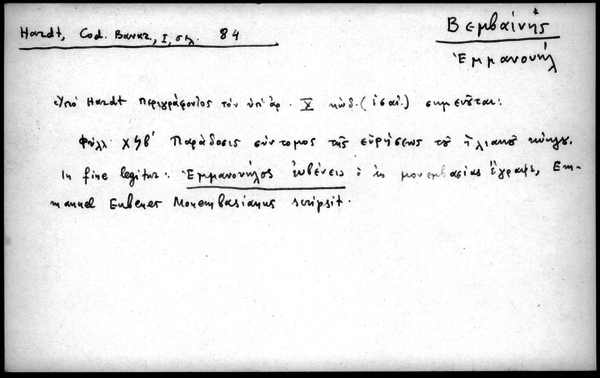 Hardt, Cod. Bavar, I, σελ. 84
Βεμβαίνης
Ἐμμανουήλ
Ὑπό Hardt περιγράφοντος τόν ὑπ' ἀρ. X κώδ. σημειοῦται:
Φύλλ. Παράδοσις σύντομος τῆς εὑρήσεως τοῦ ἡλιακοῦ κύκλου.
In fine legitur: Ἐμμανουήλος ἐκ μονεμβασίας ἔγραψε, Em-
manuel Eubenes Monembasianus scripsit.